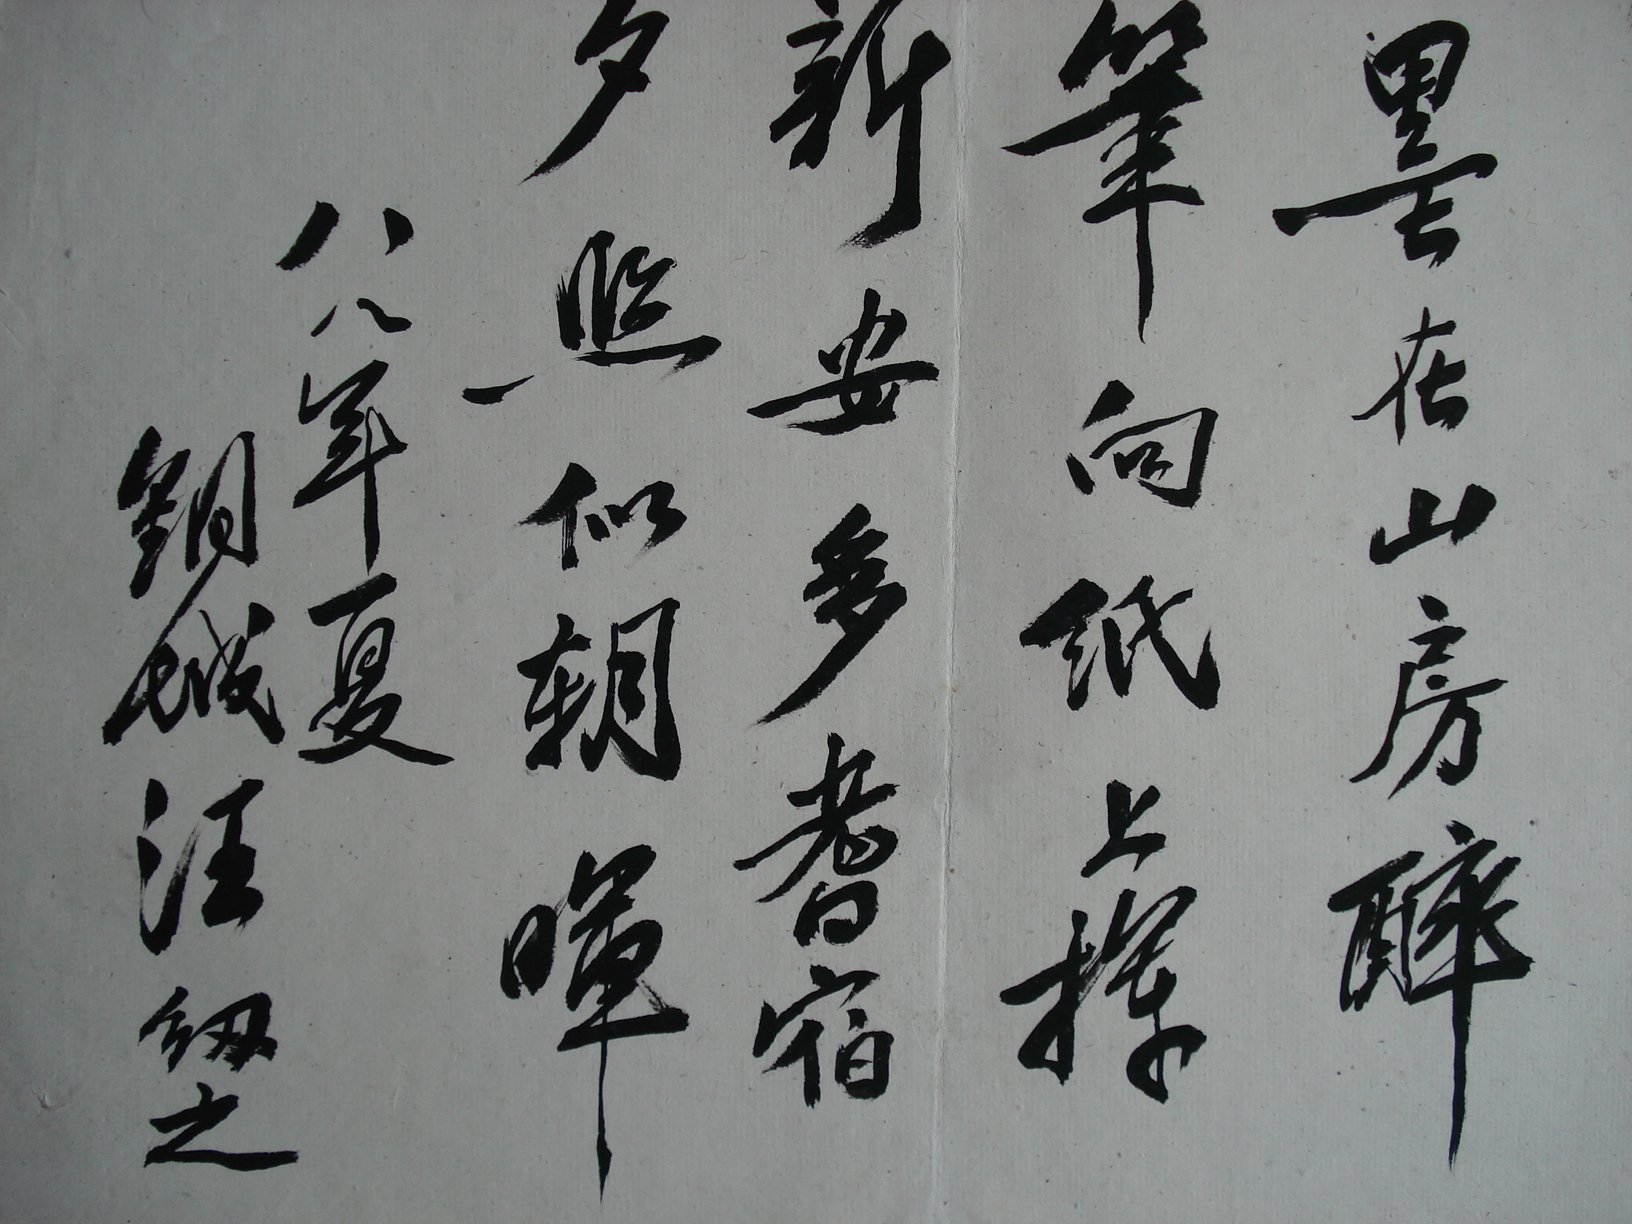 墨在山房醉
筆向紙上揮
新安多耆宿
夕照似朝暉
八八年夏
銅城汪紉之